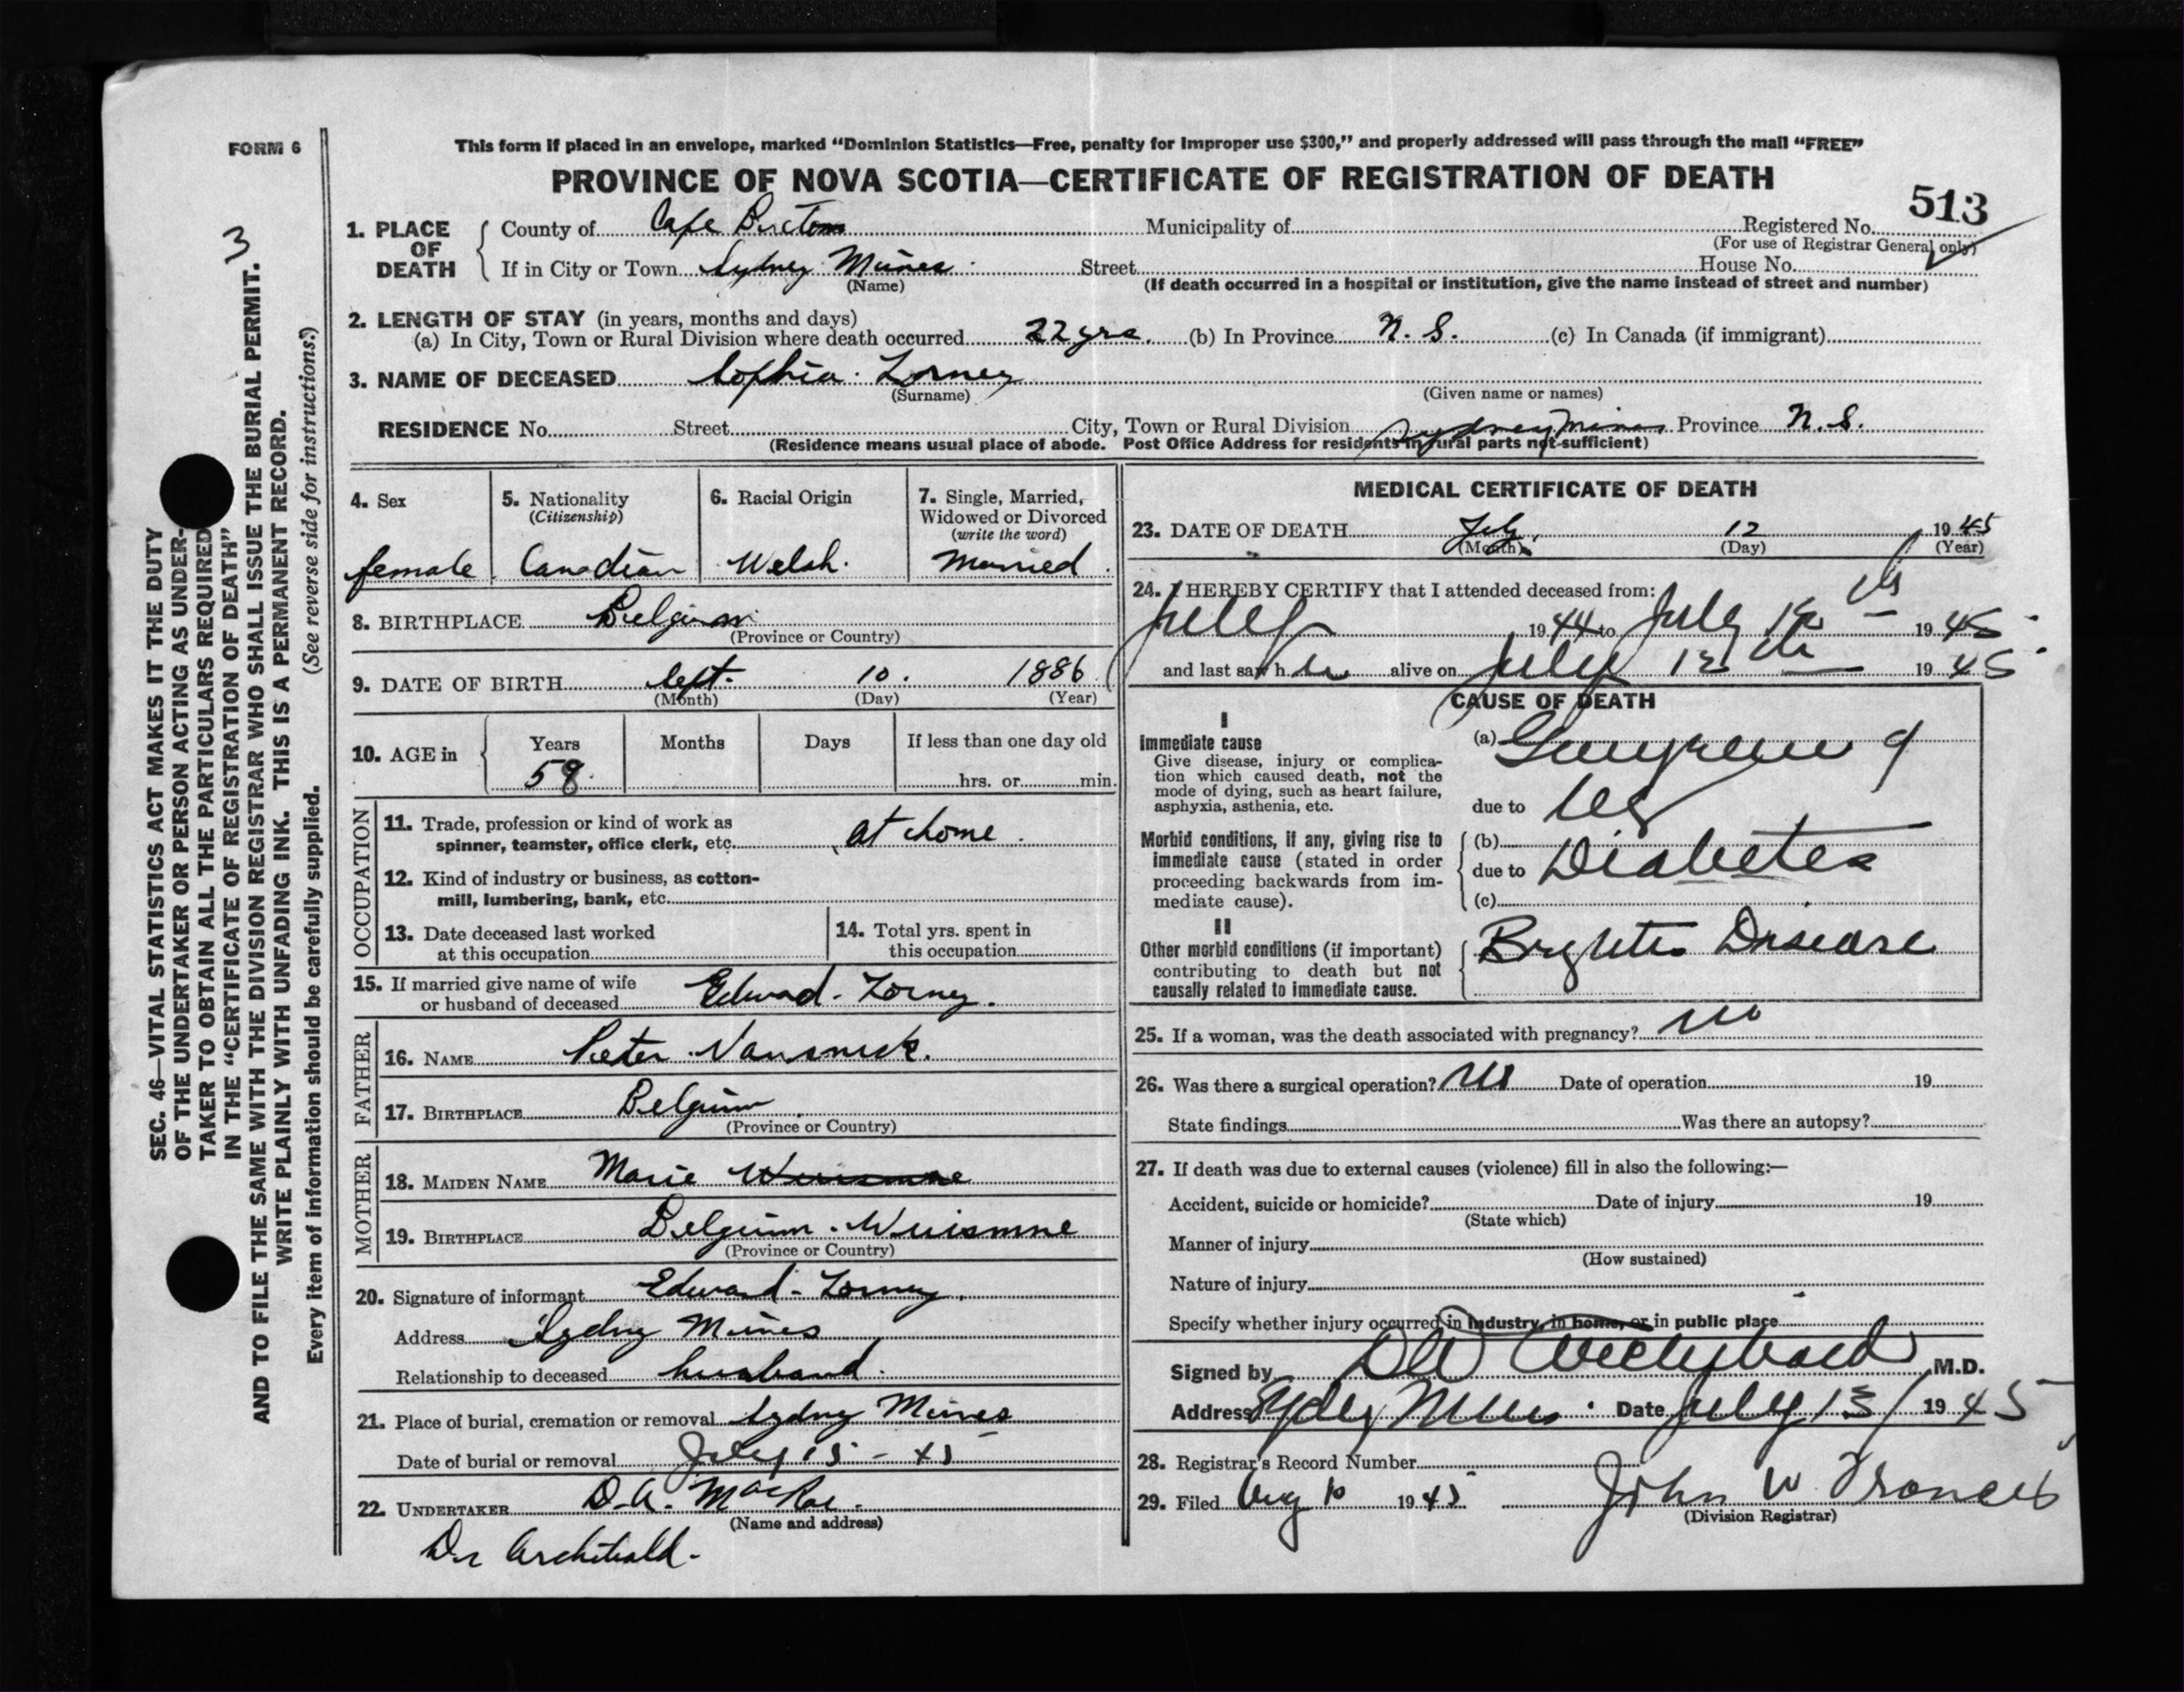 FORM 6
This form if placed in an envelope, marked “Dominion Statistics—Free, penalty for improper use $300,” and properly addressed will pass through the mail “FREE”
PROVINCE OF NOVA SCOTIA—CERTIFICATE OF REGISTRATION OF DEATH
513
3
1. PLACE OF DEATH County of Cape Breton Municipality of Registered No.
(For use of Registrar General only)
If in City or Town Sydney Mines Street House No.
(Name) (If death occurred in a hospital or institution, give the name instead of street and number)
2. LENGTH OF STAY (in years, months and days)
(a) In City, Town or Rural Division where death occurred 22 yrs. (b) In Province N. S. (c) In Canada (if immigrant)
3. NAME OF DECEASED Sophia
(Surname) (Given name or names)
RESIDENCE No. Street City, Town or Rural Division Sydney Mines Province N. S.
(Residence means usual place of abode. Post Office Address for residents in rural parts not sufficient)
4. Sex
female
5. Nationality
(Citizenship)
Canadian
6. Racial Origin
Welsh.
7. Single, Married,
Widowed or Divorced
(write the word)
Married
8. BIRTHPLACE Belgium
(Province or Country)
9. DATE OF BIRTH Sept. 10. 1886
(Month) (Day) (Year)
10. AGE in Years Months Days If less than one day old
58 hrs. or min.
OCCUPATION
11. Trade, profession or kind of work as
spinner, teamster, office clerk, etc. at home.
12. Kind of industry or business, as cotton-
mill, lumbering, bank, etc.
13. Date deceased last worked
at this occupation
14. Total yrs. spent in
this occupation
15. If married give name of wife
or husband of deceased Edward
FATHER
16. NAME Peter
17. BIRTHPLACE Belgium
(Province or Country)
MOTHER
18. MAIDEN NAME Marie
19. BIRTHPLACE Belgium
(Province or Country)
20. Signature of informant Edward
Address Sydney Mines
Relationship to deceased husband.
21. Place of burial, cremation or removal Sydney Mines
Date of burial or removal July 15 - 45
22. UNDERTAKER D. A. MacRae.
(Name and address)
Dr Archibald.
MEDICAL CERTIFICATE OF DEATH
23. DATE OF DEATH July 12 1945
(Month) (Day) (Year)
24. I HEREBY CERTIFY that I attended deceased from:
July 1944 to July 12th 1945
and last saw her alive on July 12th 1945
CAUSE OF DEATH
I
Immediate cause
Give disease, injury or complica-
tion which caused death, not the
mode of dying, such as heart failure,
asphyxia, asthenia, etc.
(a) Gangrene of
due to leg
Morbid conditions, if any, giving rise to
immediate cause (stated in order
proceeding backwards from im-
mediate cause).
(b)
due to Diabetes
(c)
II
Other morbid conditions (if important)
contributing to death but not
causally related to immediate cause.
Brights Disease
25. If a woman, was the death associated with pregnancy? no
26. Was there a surgical operation? no Date of operation 19
State findings Was there an autopsy?
27. If death was due to external causes (violence) fill in also the following:—
Accident, suicide or homicide? Date of injury 19
(State which)
Manner of injury
(How sustained)
Nature of injury
Specify whether injury occurred in industry, in home, or in public place
Signed by Archibald M.D.
Address Sydney Mines. Date July 13/ 1945
28. Registrar's Record Number
29. Filed Aug 10 1945 John W. Francis
(Division Registrar)
SEC. 46—VITAL STATISTICS ACT MAKES IT THE DUTY
OF THE UNDERTAKER OR PERSON ACTING AS UNDER-
TAKER TO OBTAIN ALL THE PARTICULARS REQUIRED
IN THE “CERTIFICATE OF REGISTRATION OF DEATH”
AND TO FILE THE SAME WITH THE DIVISION REGISTRAR WHO SHALL ISSUE THE BURIAL PERMIT.
WRITE PLAINLY WITH UNFADING INK. THIS IS A PERMANENT RECORD.
Every item of information should be carefully supplied. (See reverse side for instructions.)